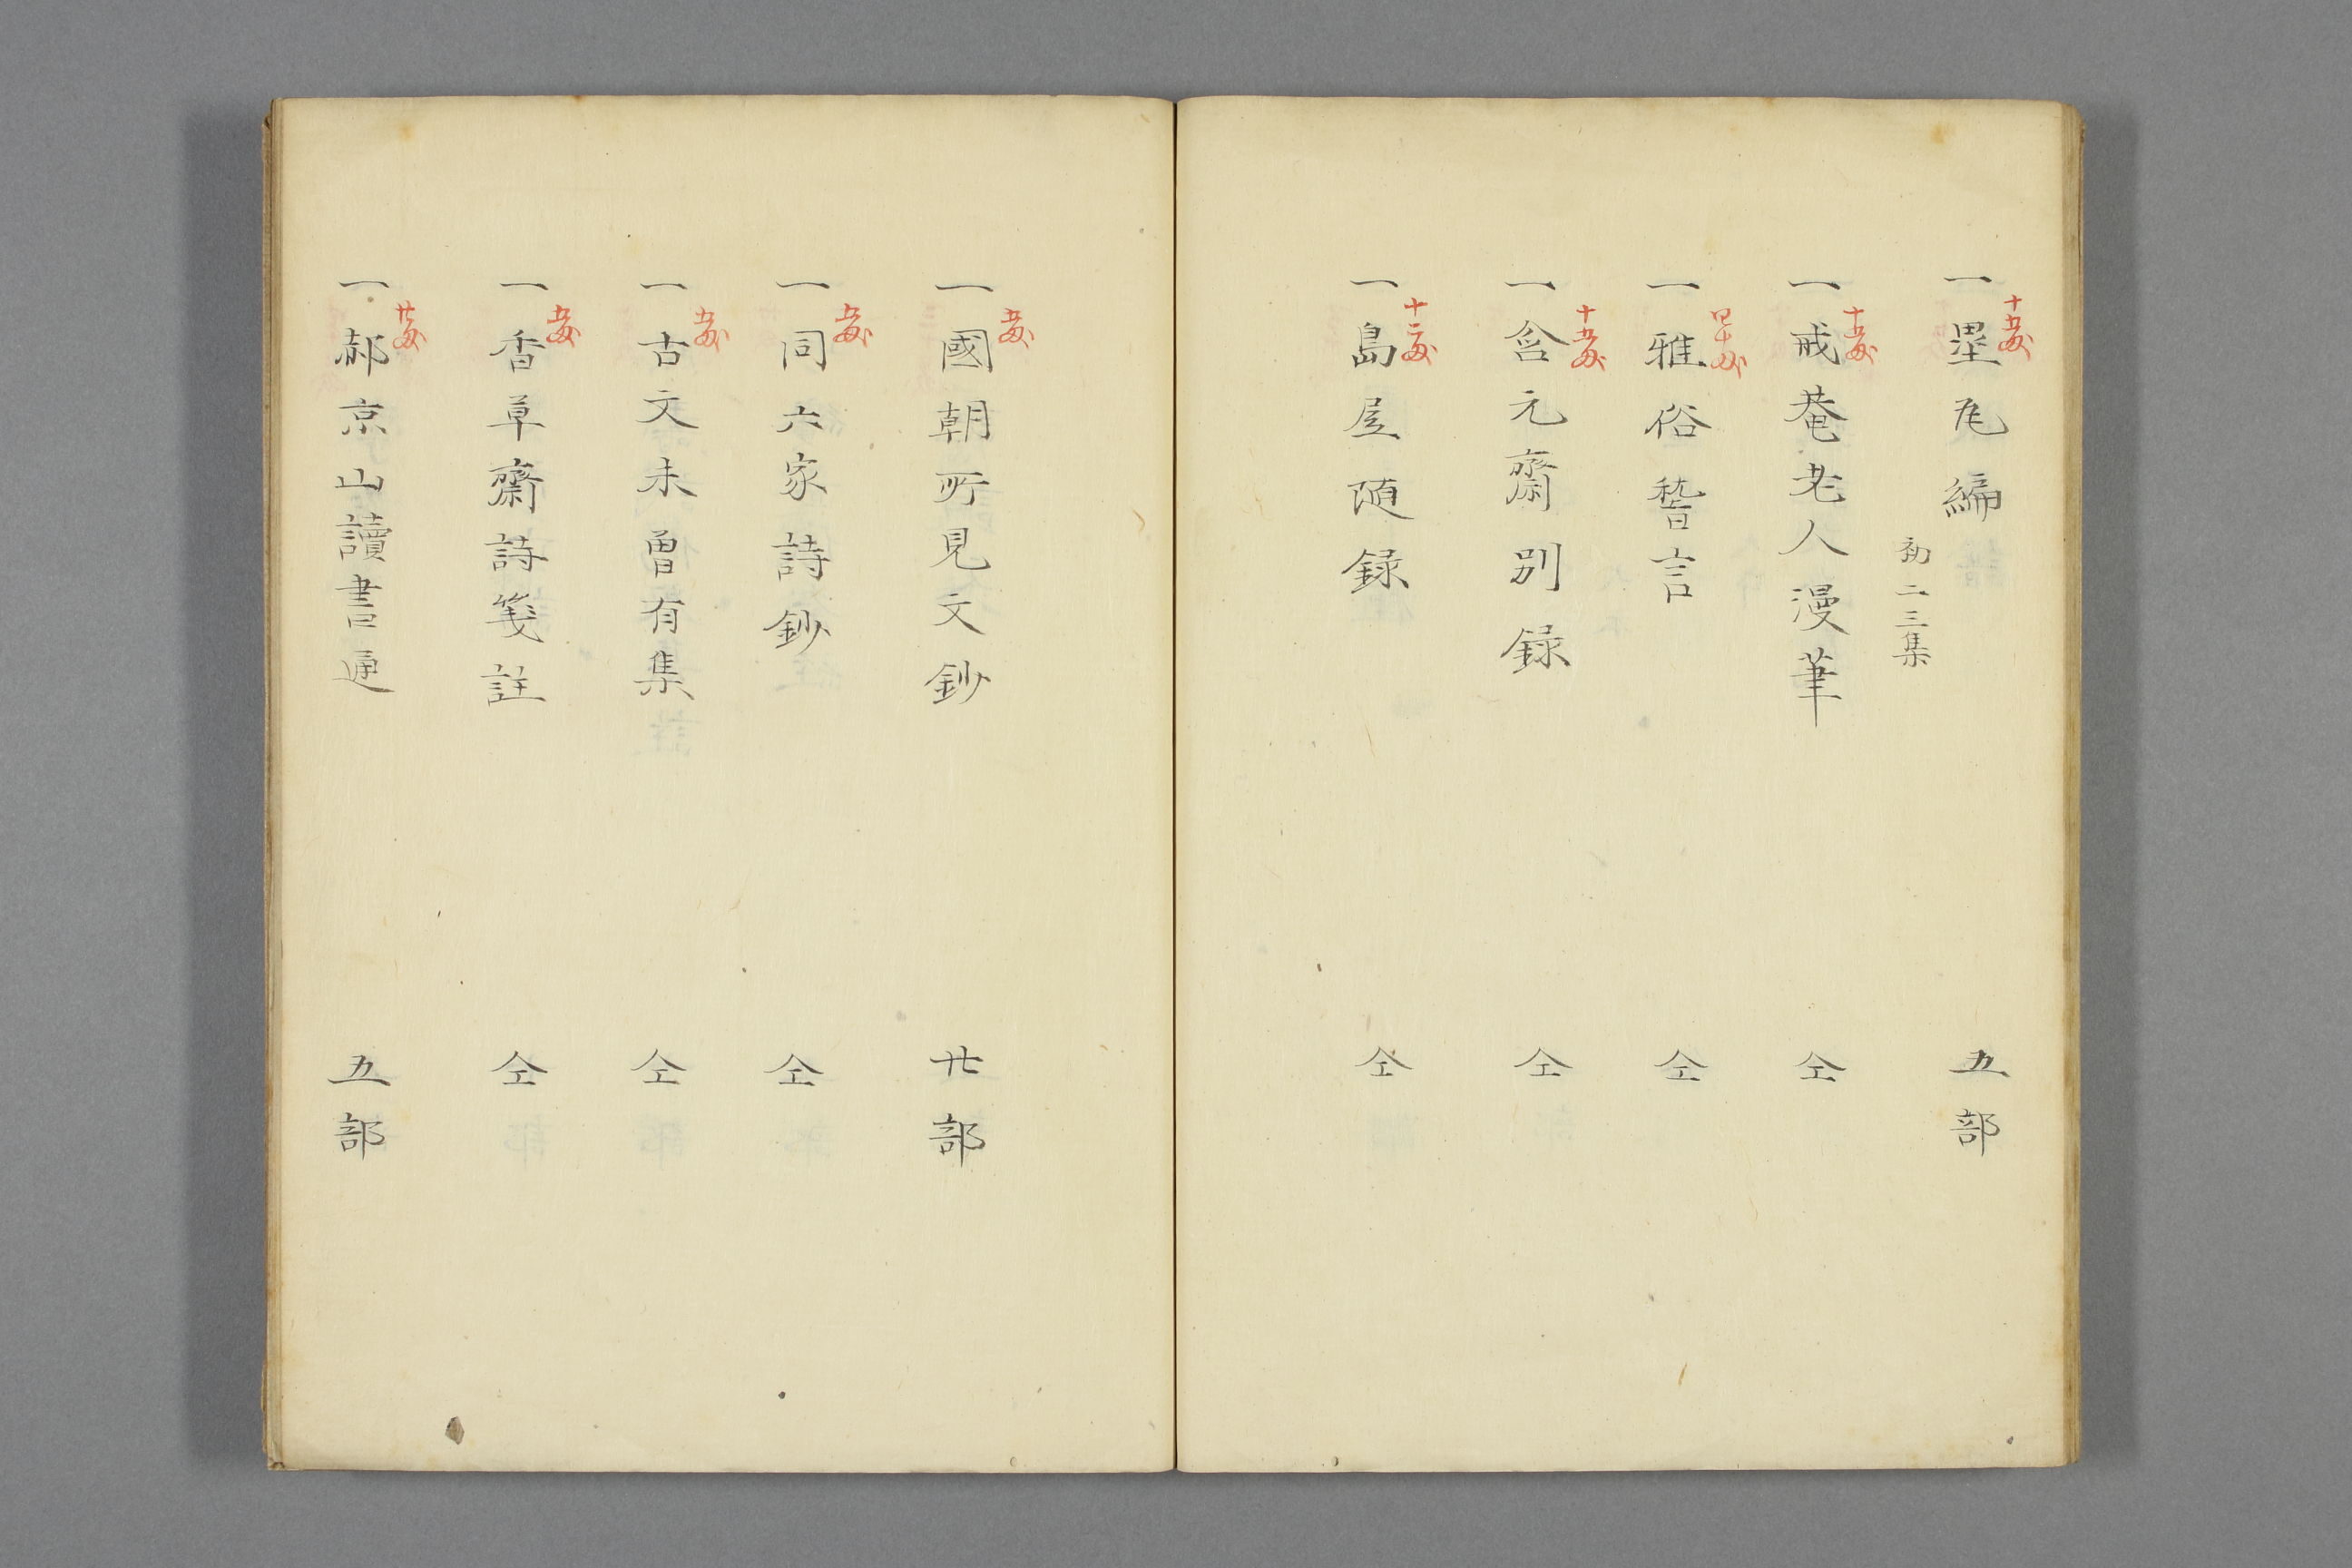 十五匁
一塁瓦編 初二三集 五部
十五匁
一戒菴老人漫筆 仝
四十匁
一雅俗稽言 仝
十五匁
一含元齋別録 仝
十二匁
一島居随録 仝
五匁
一國朝所見文鈔 廿部
五匁
一同六家詩鈔 仝
五匁
一古文未曾有集 仝
五匁
一香草齋詩箋註 仝
廿匁
一郝京山讀書通 五部